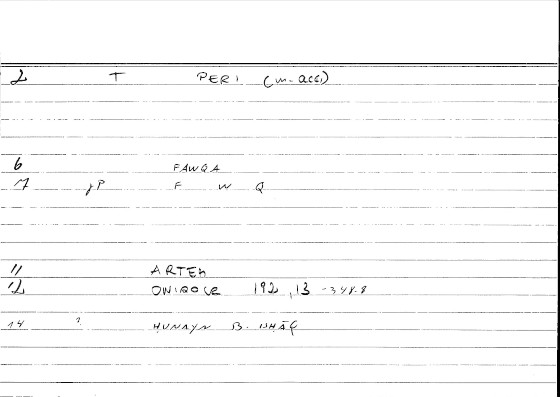 2 T PERI (m. acc.)
6 FAWQA
7 P F W Q
11 ARTEM
12 192,13 -348.8
14 ? HUNAYN B. ISHĀQ